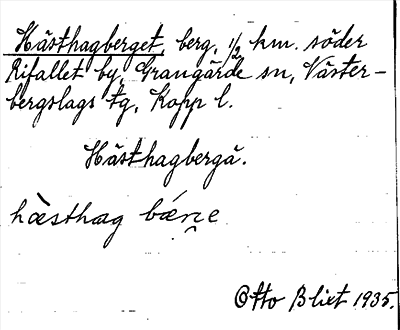 Hästhagberget, berg, 1/2 km. söder
Rifallet by, Grangärde sn, Väster-
bergslags tg, Kopp l.
Hästhagbergä.
hæ̀sthag bǽrn̥e
Otto Blixt 1935.